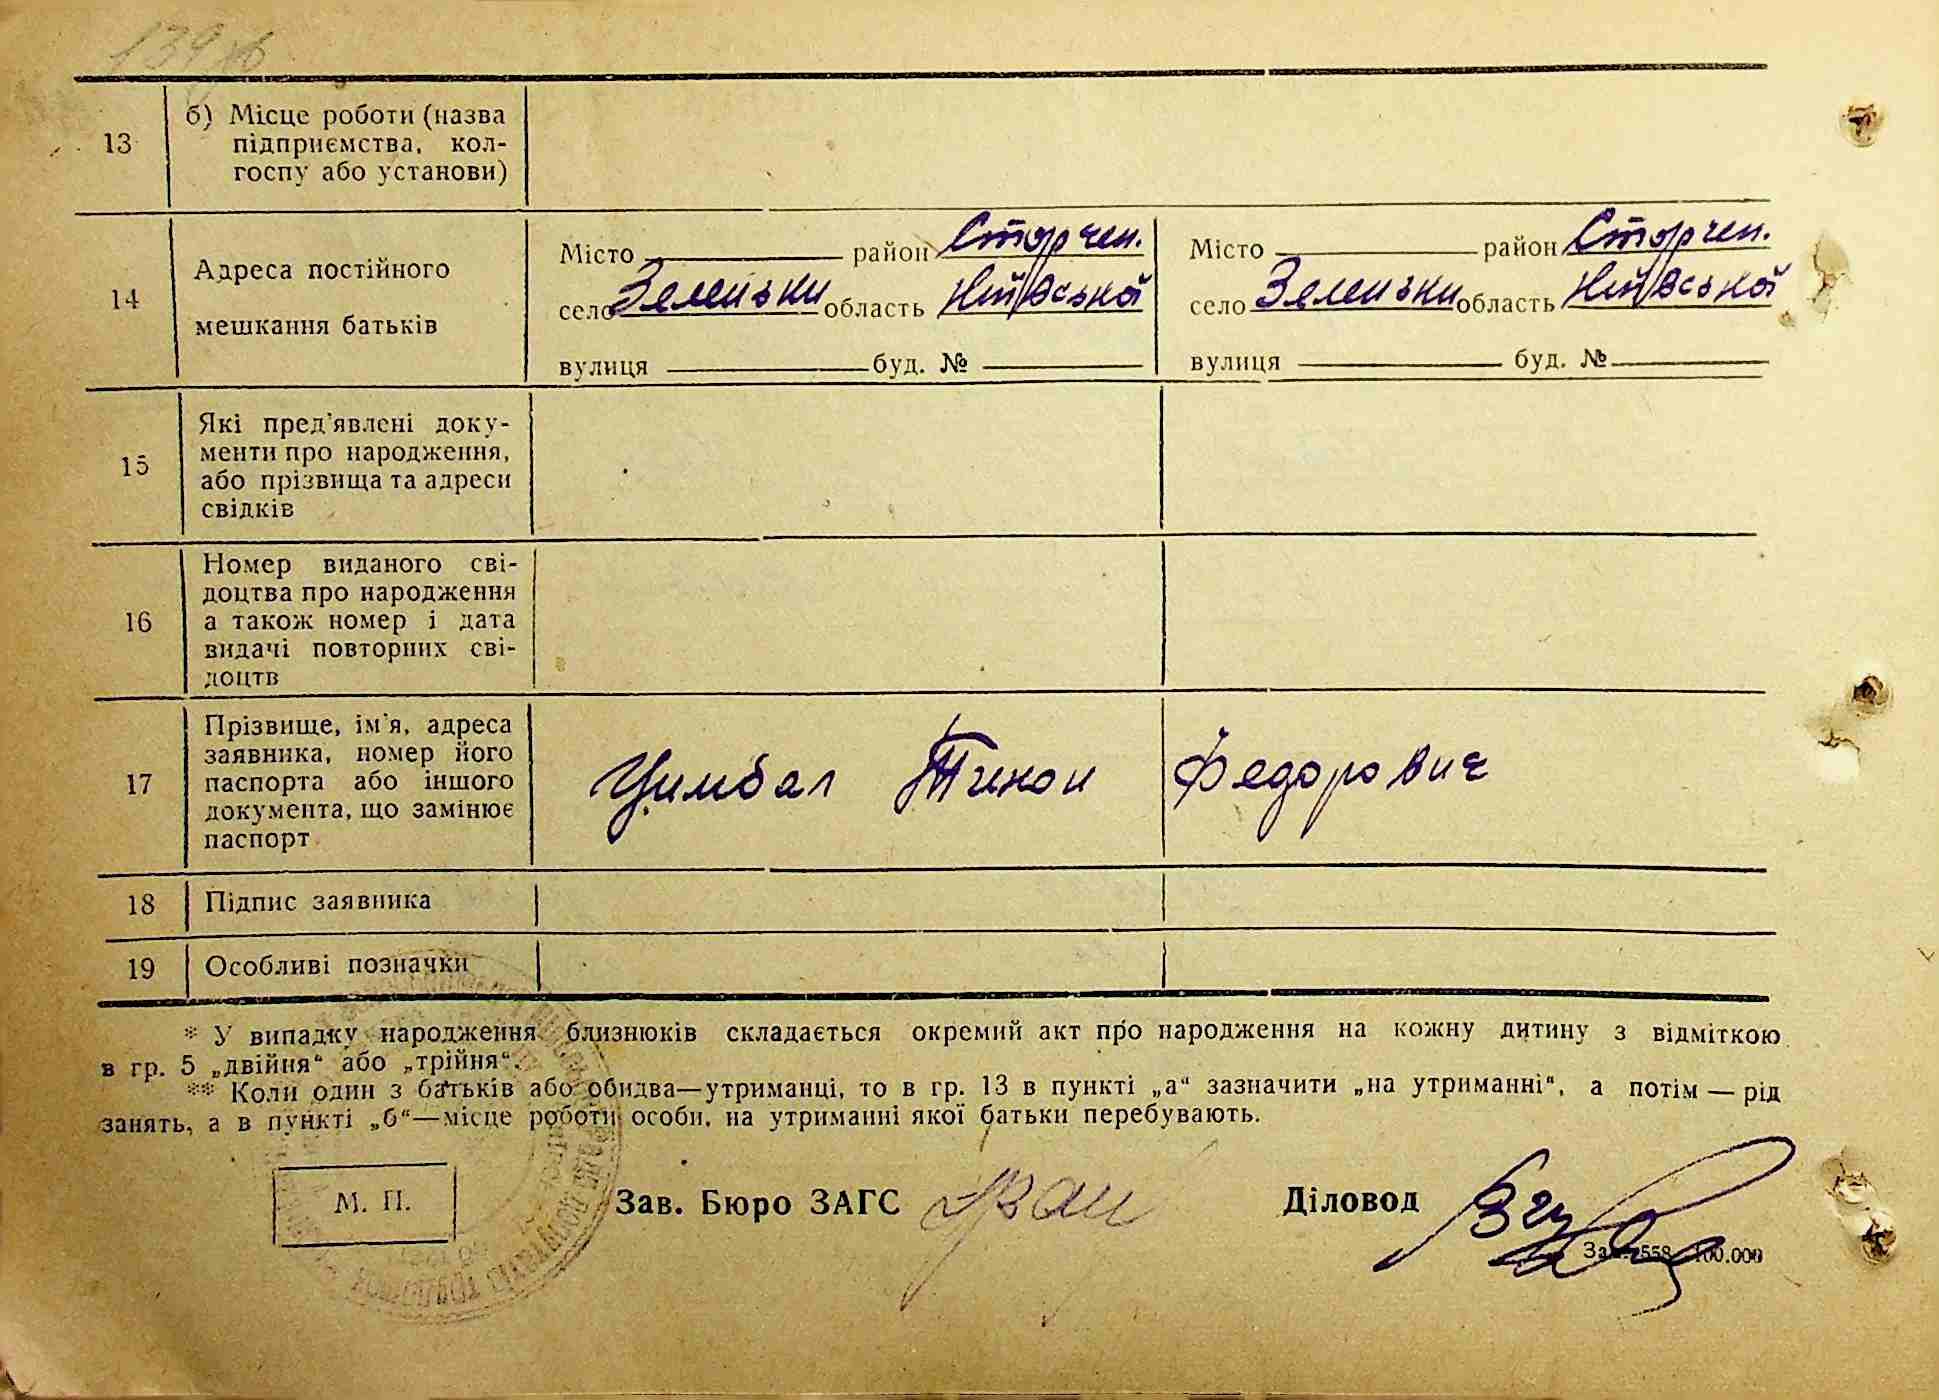 139
13
б) Місце роботи (назва
підприємства, кол-
госпу або установи)
14
Адреса постійного
мешкання батьків
Місто район Сторчен.
село Зеленьки область Київської
вулиця буд. №
Місто район Сторчен.
село Зеленьки область Київської
вулиця буд. №
15
Які пред'явлені доку-
менти про народження,
або прізвища та адреси
свідків
16
Номер виданого сві-
доцтва про народження
а також номер і дата
видачі повторних сві-
доцтв
17
Прізвище, ім'я, адреса
заявника, номер його
паспорта або іншого
документа, що замінює
паспорт
Цимбал Тихон Федорович
18
Підпис заявника
19
Особливі позначки
* У випадку народження близнюків складається окремий акт про народження на кожну дитину з відміткою
в гр. 5 „двійня“ або „трійня“.
** Коли один з батьків або обидва—утриманці, то в гр. 13 в пункті „а“ зазначити „на утриманні“, а потім — рід
занять, а в пункті „б“—місце роботи особи, на утриманні якої батьки перебувають.
М. П.
Зав. Бюро ЗАГС
Діловод
558 100.000